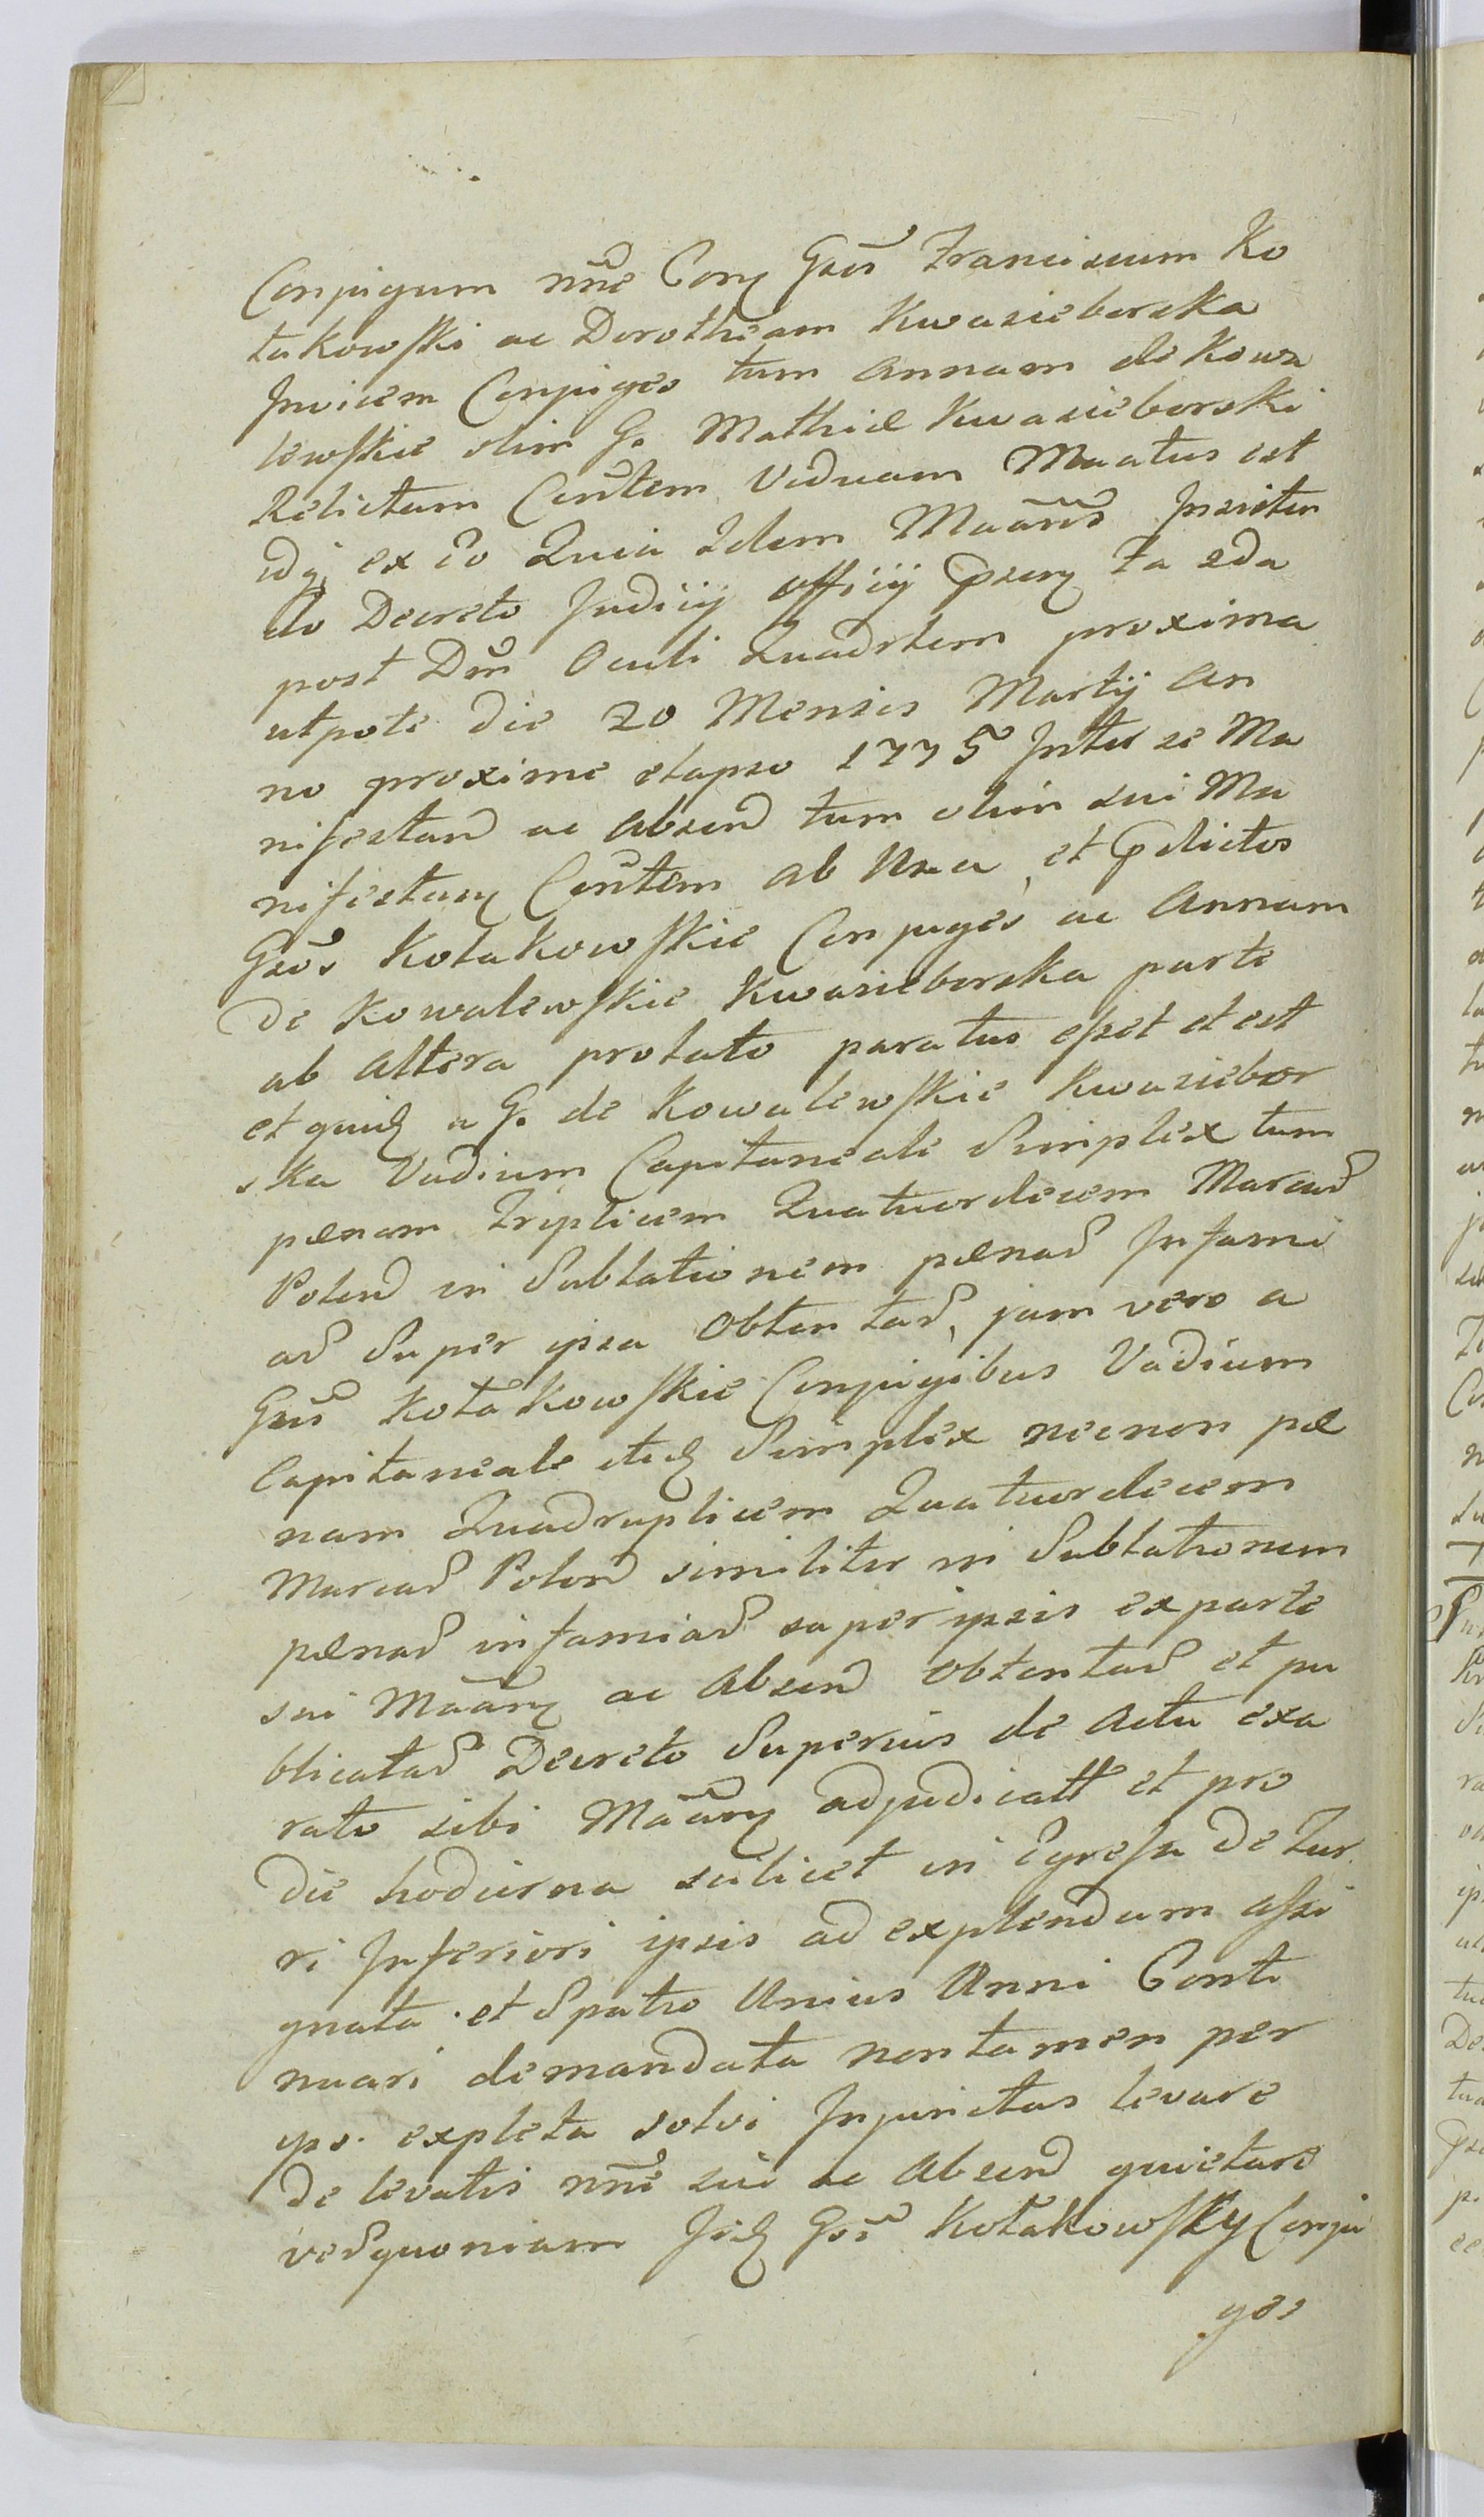 Conjugum nn̄e Conȝ Gsos Franciscum Ko
takowski ac Dorotheam Kwasieborska
Jnvicem Conjuges tum Annam de Kowa
lewskie olim G. Mathiæ Kwasieborski
Relictam Cons̄tem Viduam Maatus est
idq, ex eo Quia Idem Maān̄s Jnsisten
do Decreto Judicij Officij psenȝ Fa 2da
post Dm̄ Oculi Quadrlem proxima
utpote die 20 Mensis Martij An
no proxime elapso 1775 Jnter se Ma
nifestan̄ ac Absen̄ tum olim sui Ma
nifestanȝ Cons̄tem ab Una, et pdictos
Gsos Kotakowskie Conjuges ac Annam
De Kowalewskie Kwasieborska parte
ab Altera prolato paratus esset et est
et quidȝ a G. de Kowalewskie Kwasiebor
ska Vadium Capitaneale Simplex tum
pænam Triplicem Quatuordecem Marcas
Polon̄ in Sublationem pænas Jnfami
as Super ipsa Obtentas, jam vero a
Gsis Kotakowskie Conjugibus Vadium
Capitaneale itidȝ Simplex necnon pæ
nam Quadruplicem Quatuordecem
Marcas Polon̄ similiter in Sublationem
pænas infamias super ipsis ex parte
sui Maānȝ ac Absen̄ obtentas et pu
blicatas Decreto Superius de Actu exa
rato sibi Maānȝ adjudicatt et pro
die hodierna scilicet in Egressu De Tur
ri Jnferiori ipsis ad explendum assi
gnata et Spatio Unius Anni Conti
nuari demandata non tamen per
ips. expleta solvi Jnjunctas levare
De levatis nn̄e sui ac Absen̄ quietare
vesquoniam Jidȝ Gsi Kotakowsky Conju
ges